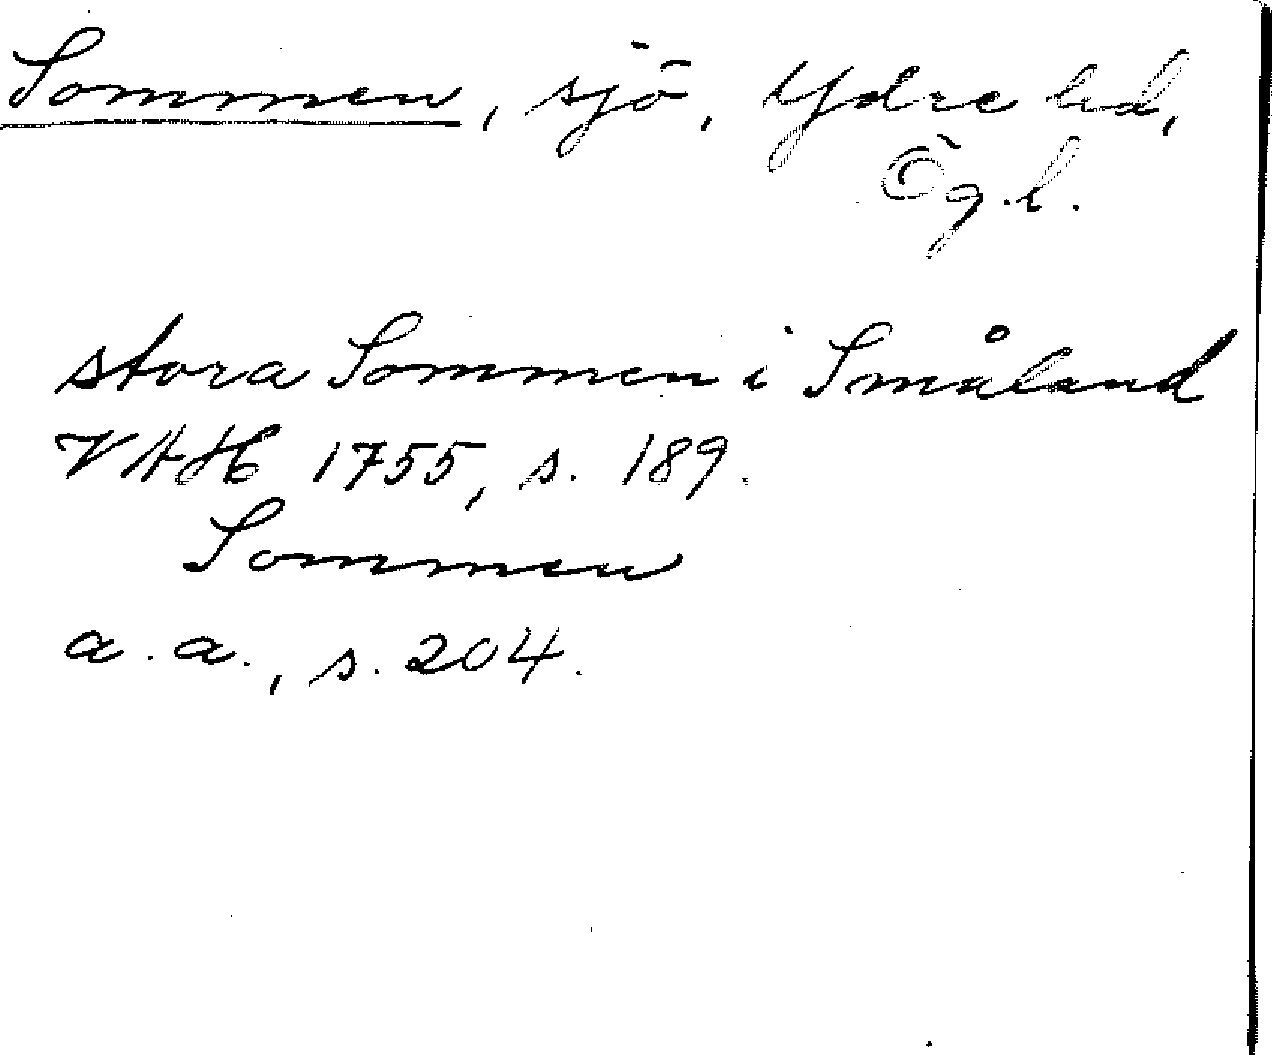 Sommen, sjö, Ydre hd,
Ög.l.
stora Sommen i Småland
VAH 1755, s. 189.
Sommen
a. a., s. 204.